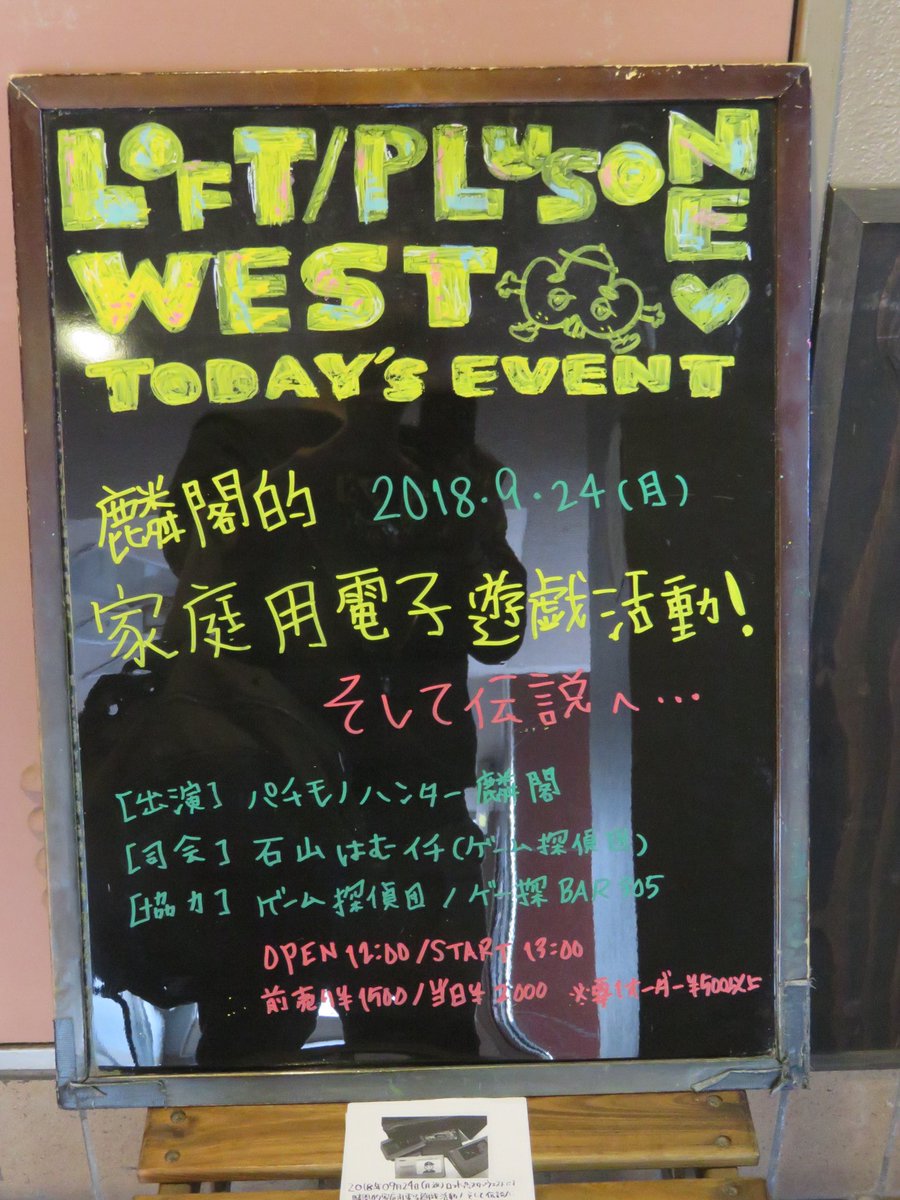 LOFT/PLUSONE
WEST
TODAY'S EVENT
麟閣的 2018.9.24(月)
家庭用電子遊戯活動!
そして伝説へ…
[出演] パチモノハンター麟閣
[司会] 石山はむイチ(ゲーム探偵団)
[協力] ゲーム探偵団/ゲー探BAR 305
OPEN 12:00/START 13:00
前売り¥1500/当日¥2000 ※要1オーダー¥500以上